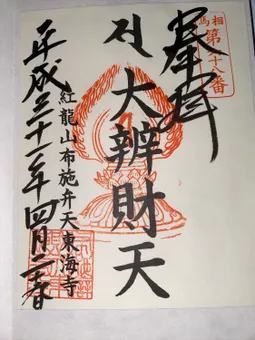 相馬
第十八番
奉拝
大辨財天
紅龍山布施弁天東海寺
平成三十一年四月